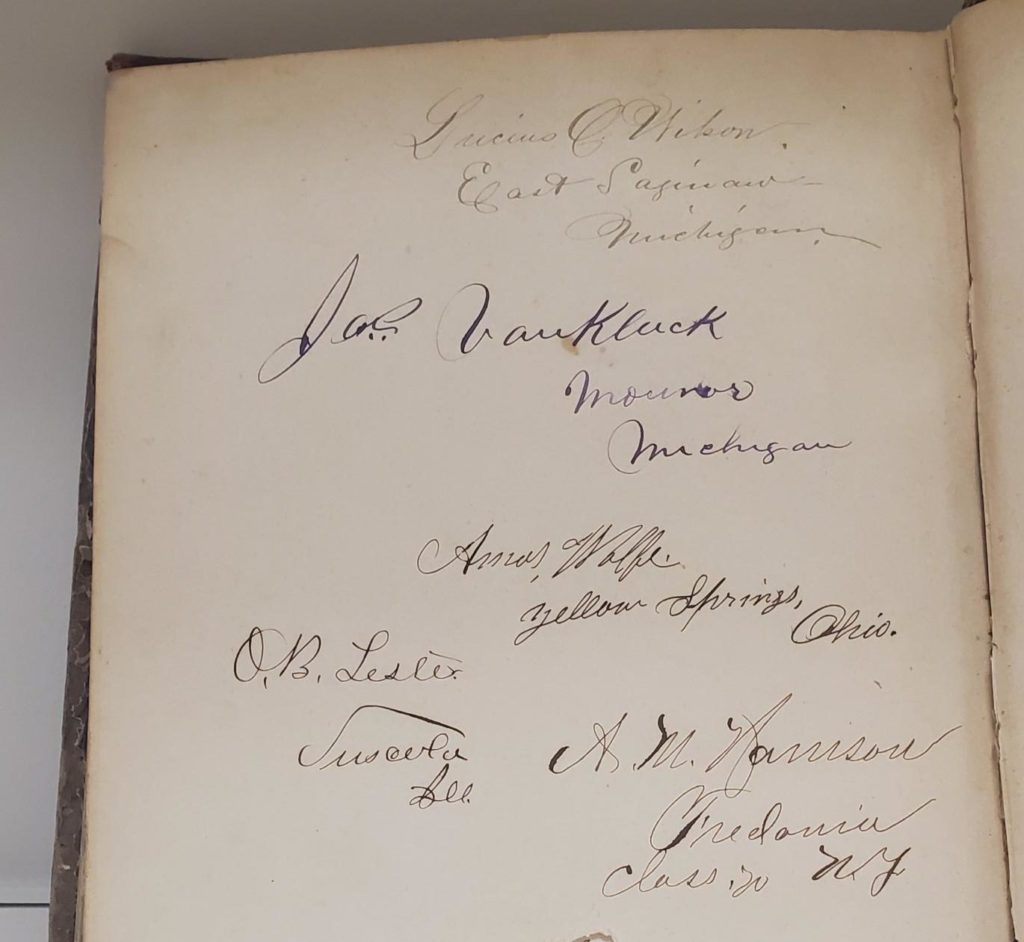 Lucius C. Wilson.
East Saginaw
Michigan.
Jas. VanKluck
Monroe
Michigan
Amos Wolfe.
Yellow Springs,
Ohio.
O. B. Lester
Tuscola
Ill.
A. M. Harrison
Fredonia
Class. 70 N.Y